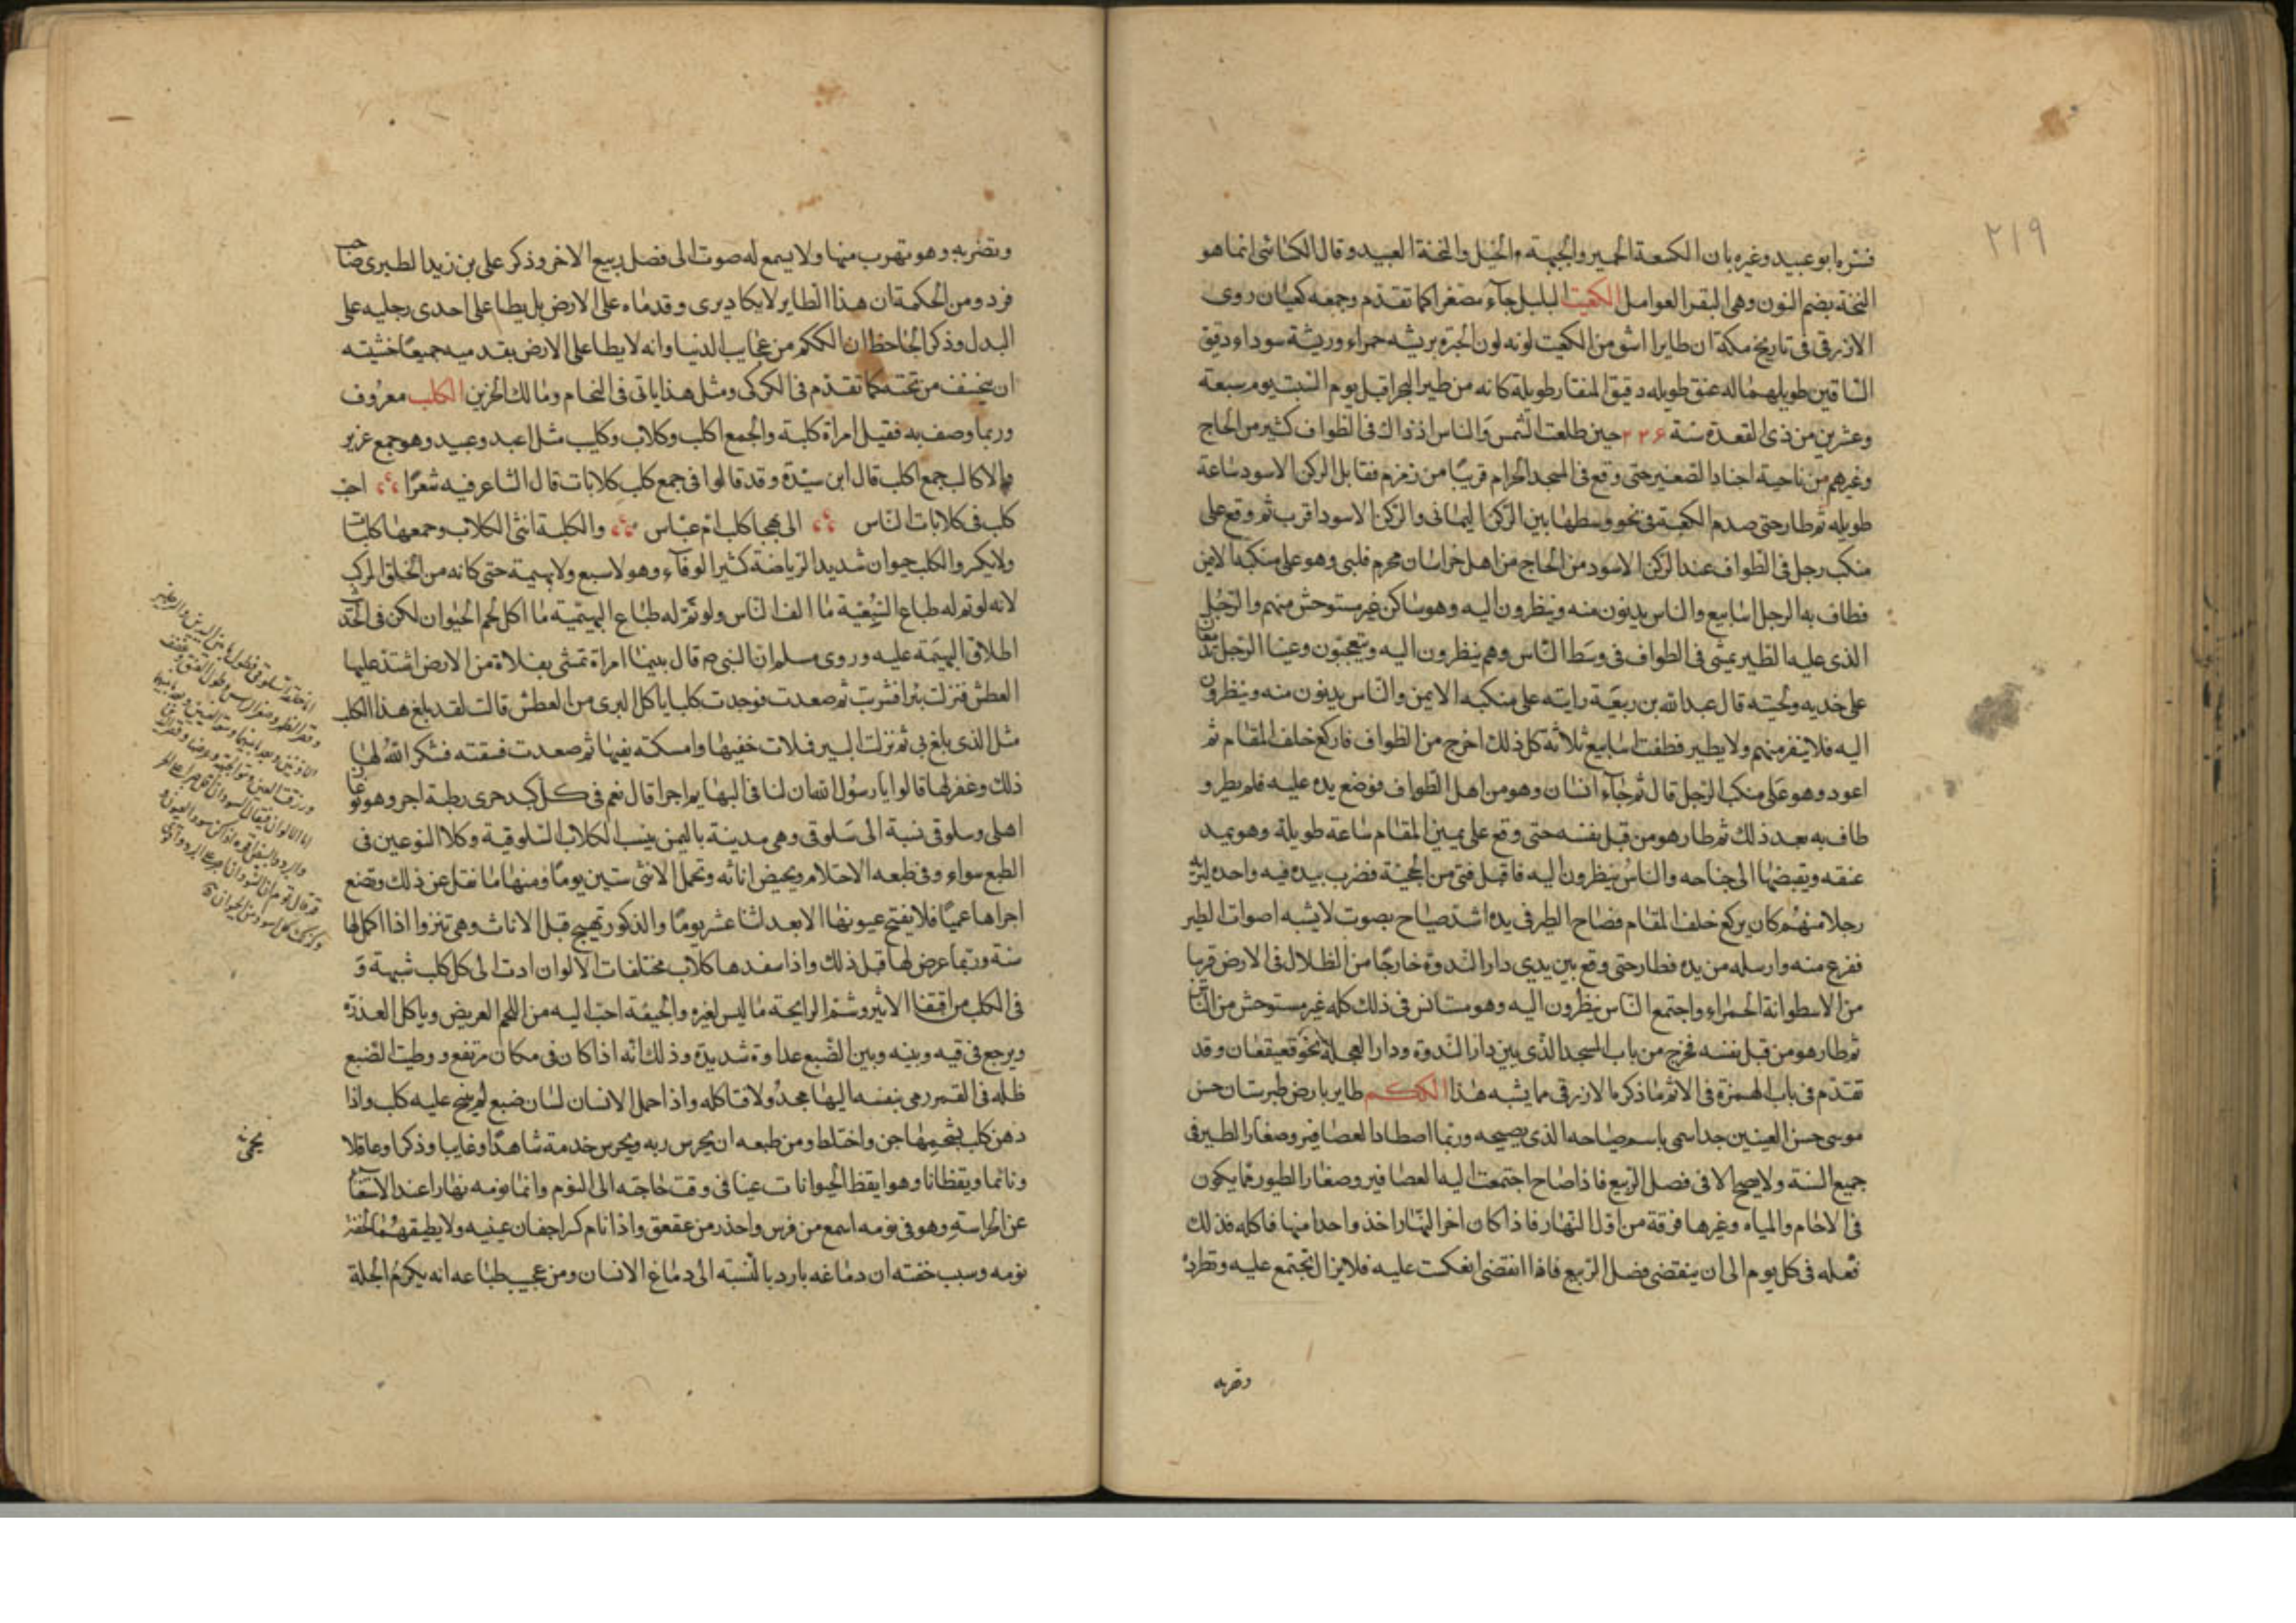 ٢١٩
فسره ابو عبيد وغيره بان الكسعة الحمير والجبهة الخيل والنخة العبيد وقال الكسائى انما هو
النخة بضم النون وهى البقر العوامل الكعيت البلبل جآء مصغرا كما تقدم وجمعه كعيتان روى
الازرقى فى تاريخ مكة ان طايرا اشق من الكعيت لونه لون الحبرة بريشه حمراء وريشة سوداء دقيق
الساقين طويلهما له عنق طويله دقيق المنقار طويلة كانه من طير البحر اقبل يوم السبت يوم سبعة
وعشرين من ذى القعدة سنة ٢٢۶ حين طلعت الشمس والناس اذ ذاك فى الطواف كثير من الحاج
وغيرهم من ناحية اجناد الصغير حتى وقع فى المسجد الحرام قريبًا من زمزم فقابل الركن الاسود ساعة
طويله ثم طار حتى صدم الكعبة فى نحو وسطها بين الركن اليمانى والركن الاسود اقرب ثم وقع على
منكب رجل فى الطواف عند الركن الاسود من الحاج من اهل خراسان محرم فلبى وهو على منكبه الايمن
فطاف به الرجل اسابيع والناس يدنون منه وينظرون اليه وهو ساكن غير مستوحش منهم والرجل
الذى عليه الطير يمشى فى الطواف فى وسط الناس وهم ينظرون اليه ويتعجبون وعينا الرجل تدمعان
على خديه ولحيته قال عبد الله بن ربيعة رايته على منكبه الايمن والناس يدنون منه وينظرون
اليه فلا ينفر منهم ولا يطير فطفت اسابيع ثلاثة كل ذلك اخرج من الطواف فاركع خلف المقام ثم
اعود وهو على منكب الرجل قال ثم جآء انسان وهو من اهل الطواف فوضع يده عليه فلم يطر و
طاف به بعد ذلك ثم طار هو من قبل نفسه حتى وقع على يمين المقام ساعة طويلة وهو يمد
عنقه ويقبضها الى جناحه والناس ينظرون اليه فاقبل فتى من الحجبة فضرب بيده فيه واحده ليريه
رجلا منهم كان يركع خلف المقام فصاح الطير فى يده اشد صياح بصوت لا يشبه اصوات الطير
ففزع منه وارسله من يده فطار حتى وقع بين يدى دار الندوة خارجًا من الظلال فى الارض قريبا
من الاسطوانة الحمراء واجتمع الناس ينظرون اليه وهو مستانس فى ذلك كله غير مستوحش من الناس
ثم طار هو من قبل نفسه فخرج من باب المسجد الذى بين دار الندوة ودار العجلة نحو قعيقعان وقد
تقدم فى باب الهمزة فى الاثم ما ذكره الازرقى مما يشبه هذا الككم طاير بارض طبرستان حسن
موسى حسن العينين جدا سمى باسم صياحه الذى يصيحه وربما اصطاد العصافير وصغار الطير فى
جميع السنة ولا يصيح الا فى فصل الربيع فاذا صاح اجتمعت اليه العصافير وصغار الطيور مما يكون
فى الاجام والمياه وغيرها فرقة من اول النهار فاذا كان اخر النهار اخذ واحدا منها فاكله فذلك
فعله فى كل يوم الى ان ينقضى فصل الربيع فاذا انقضى انعكست عليه فلا يزال تجتمع عليه وتطرده
وتضربه
وتضربه وهو تهرب منها ولا يسمع له صوت الى فصل ربيع الاخر وذكر على بن زيد الطبرى صاحب
فردوس الحكمة ان هذا الطاير لا يكاد يرى وقدماه على الارض بل يطا على احدى رجليه على
البدل وذكر الجاحظ ان الككم من عجايب الدنيا وانه لا يطا على الارض بقدميه جميعًا خشيته
ان يخسف من تحته كما تقدم فى الكركى ومثل هذا ياتى فى النحام ومالك الحزين الكلب معروف
وربما وصف به فقيل امراة كلبة والجمع اكلب وكلاب وكليب مثل اعبد وعبيد وهو جمع عزيز
والاكالب جمع اكلب قال ابن سيدة وقد قالوا فى جمع كلب كلابات قال الشاعر فيه شعرًا احب
كلب فى كلابات الناس الى هجا كلب ام عباس والكلبة انثى الكلاب وجمعها كلبات
ولا يكسر والكلب حيوان شديد الرياضة كثير الوفآء وهو لا سبع ولا بهيمة حتى كانه من الخلق المركب
لانه لو تم له طباع السبعية ما الف الناس ولو تم له طباع البهيمية ما اكل لحم الحيوان لكن فى الحديث
اطلاق البهيمة عليه وروى مسلم ان النبى ص قال بينما امراة تمشى بفلاة من الارض اشتد عليها
العطش فنزلت بئرا فشربت ثم صعدت فوجدت كلبا ياكل الثرى من العطش قالت لقد بلغ هذا الكلب
مثل الذى بلغ بى ثم نزلت البير فملات خفيها وامسكته بفيها ثم صعدت فسقته فشكر الله لها
ذلك وغفر لها قالوا يا رسول الله ان لنا فى البهايم اجرا قال نعم فى كل كبد حرى رطبة اجر وهو نوعان
اهلى وسلوقى نسبة الى سلوقى وهى مدينة باليمن ينسب الكلاب السلوقية وكلا النوعين فى
الطبع سواء وفى طبعه الاحتلام ويحيض اناثه وتحمل الانثى ستين يومًا ومنها ما نقل عن ذلك وتضع
اجراها عميًا فلا يفتح عيونها الا بعد اثنا عشر يومًا والذكور تهيج قبل الاناث وهى تنزوا اذا اكمل لها
سنة وربما عرض لها قبل ذلك واذا سفدها كلاب مختلفات الالوان ادت الى كل كلب شبهه و
فى الكلب من اقتفا الاثير وشم الرايحة ما ليس لغيره والجيفة احب اليه من اللحم الغريض وياكل العذرة
ويرجع فى قيه وبينه وبين الضبع عداوة شديدة وذلك انه اذا كان فى مكان مرتفع ووطيت الضبع
ظله فى القمر رمى بنفسه اليها مجدولا فتاكله واذا حمل الانسان لسان ضبع لم ينبح عليه كلب واذا
دهن كلب بشحمها جن واختلط ومن طبعه ان يحرس ربه ويحرس خدمة شاهدًا وغايبا وذكرا وغافلا
ونائما ويقظانا وهو ايقظ الحيوانات عينا فى وقت حاجته الى النوم وانما نومه نهارا عند الاستغنا
عن الحراسة وهو فى نومه اسمع من فرس واحذر من عقعق واذا نام كسر اجفان عينيه ولا يطبقهما لخفة
نومه وسبب خفته ان دماغه بارد بالنسبة الى دماغ الانسان ومن عجيب طباعه انه يكرم الجلة